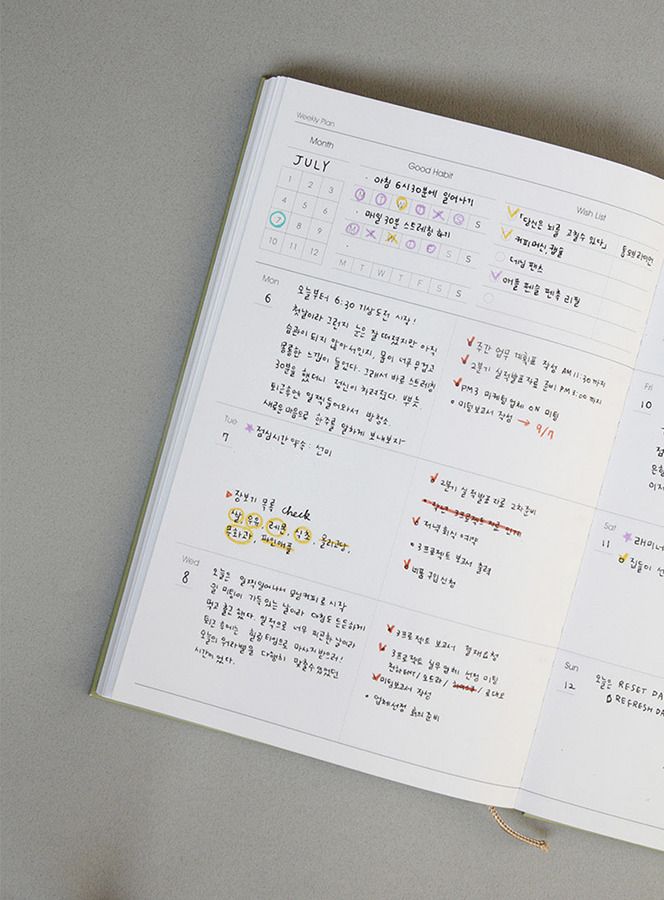 Weekly Plan
Month
JULY
1 2 3
4 5 6
7 8 9
10 11 12
Good Habit
· 아침 6시30분에 일어나기
M T W T F S S
· 매일 30분 스트레칭 하기
M T W T F S S
M T W T F S S
Wish List
「당신은 뇌를 고칠 수 있다」
커피머신 캡슐
데님 팬츠
애플 펜슬 펜촉 리필
Mon
6
오늘부터 6:30 기상도전 시작!
첫날이라 그런지 눈은 잘 떠졌지만 아직
습관이 되지 않아서인지, 몸이 너무 무겁고
몽롱한 느낌이 들었다. 그래서 바로 스트레칭
30분을 했더니 정신이 차려졌다. 뿌듯.
퇴근후엔 일찍 들어와서 방청소.
새로운 마음으로 한주를 알차게 보내보자-
주간 업무 계획표 작성 AM 11:30 까지
2분기 실적발표 자료 준비 PM 5:00 까지
PM3 마케팅 업체 ON 미팅
• 미팅보고서 작성 → 9/7
Tue
7
점심시간 약속 : 선미
장보기 목록 check
쌀, 우유, 레몬, 식초, 올리고당,
무화과, 파인애플
2분기 실적발표 자료 2차준비
저녁 회식 예약
• 3프로젝트 보고서 출력
비품 구입 신청
Wed
8
오늘은 일찍일어나서 모닝커피로 시작
월 미팅이 가득 있는 날이라 아침도 든든하게
먹고 출근했다. 일적으로 너무 피곤한 날이라
퇴근 후에는 힐링타임으로 마사지받으러!
오늘의 워라밸을 다행히 맞출수있었던
시간이었다.
3프로젝트 보고서 결재요청
3프로젝트 실무 업체 선정 미팅
미팅보고서 작성
• 업체선정 회의 준비
Fri
10
Sat
11
집들이 선
Sun
12
오늘은 RESET DA
& REFRESH DA